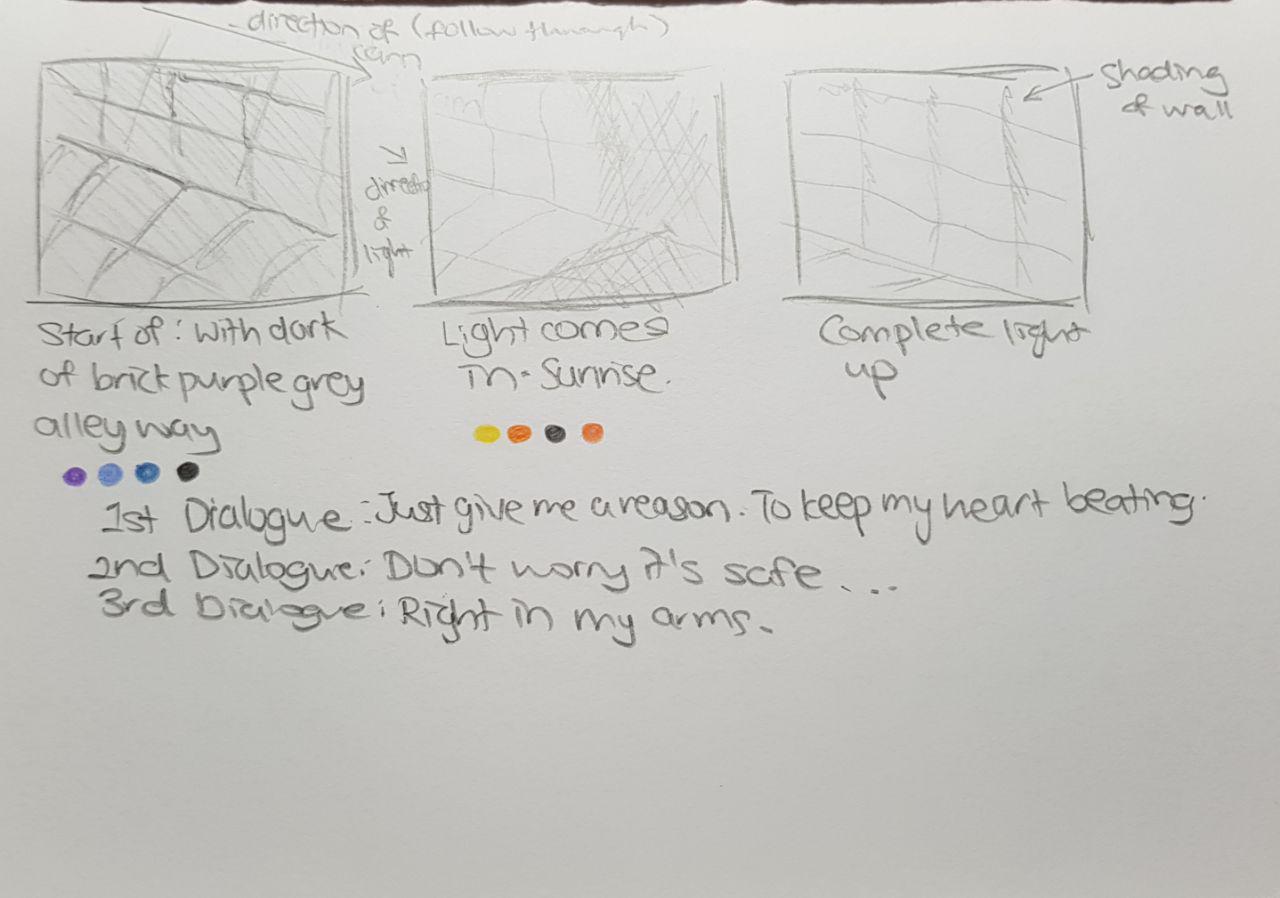 direction of (follow through)
direction
of
light
Shading
of wall
Start of: With dark
of brick purple grey
alley way
Light comes
in. Sunrise.
Complete light
up
1st Dialogue: Just give me a reason. To keep my heart beating.
2nd Dialogue: Don't worry it's safe ...
3rd Dialogue: Right in my arms.